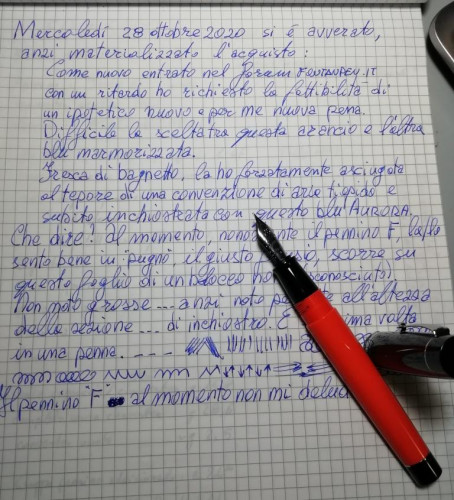 Mercoledì 28 ottobre 2020 si è avverato,
anzi materializzato l'acquisto:
Come nuovo entrato nel forum FOUNTAINPEN.IT
con un ritardo ho richiesto la fattibilità di
un ipotetico nuovo e per me nuova penna.
Difficile la scelta tra questa arancio e l'altra
blu marmorizzata.
Fresca di bagnetto, la ho forzatamente asciugata
al tepore di una convenzione di aria tiepida e
subito inchiostrata con questo blu AURORA.
Che dire! Al momento, nonostante il pennino F,
sento bene in pugno il giusto scorre su
questo foglio di un blocco
Non noto grosse ... anzi noto all'altezza
della sezione ... di inchiostro. È prima volta
in una penna. ----
Il pennino "F" al momento non mi